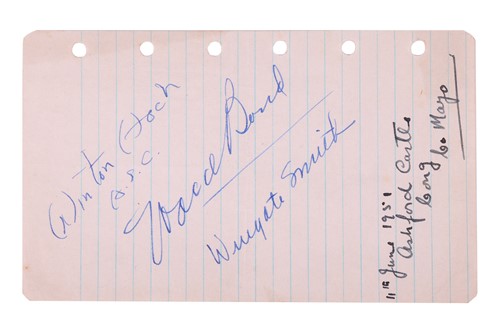 Winton Hoch
A.S.C.
Ward Bond
Wingate Smith
11th June 1951
Ashford Castle
Cong Co Mayo